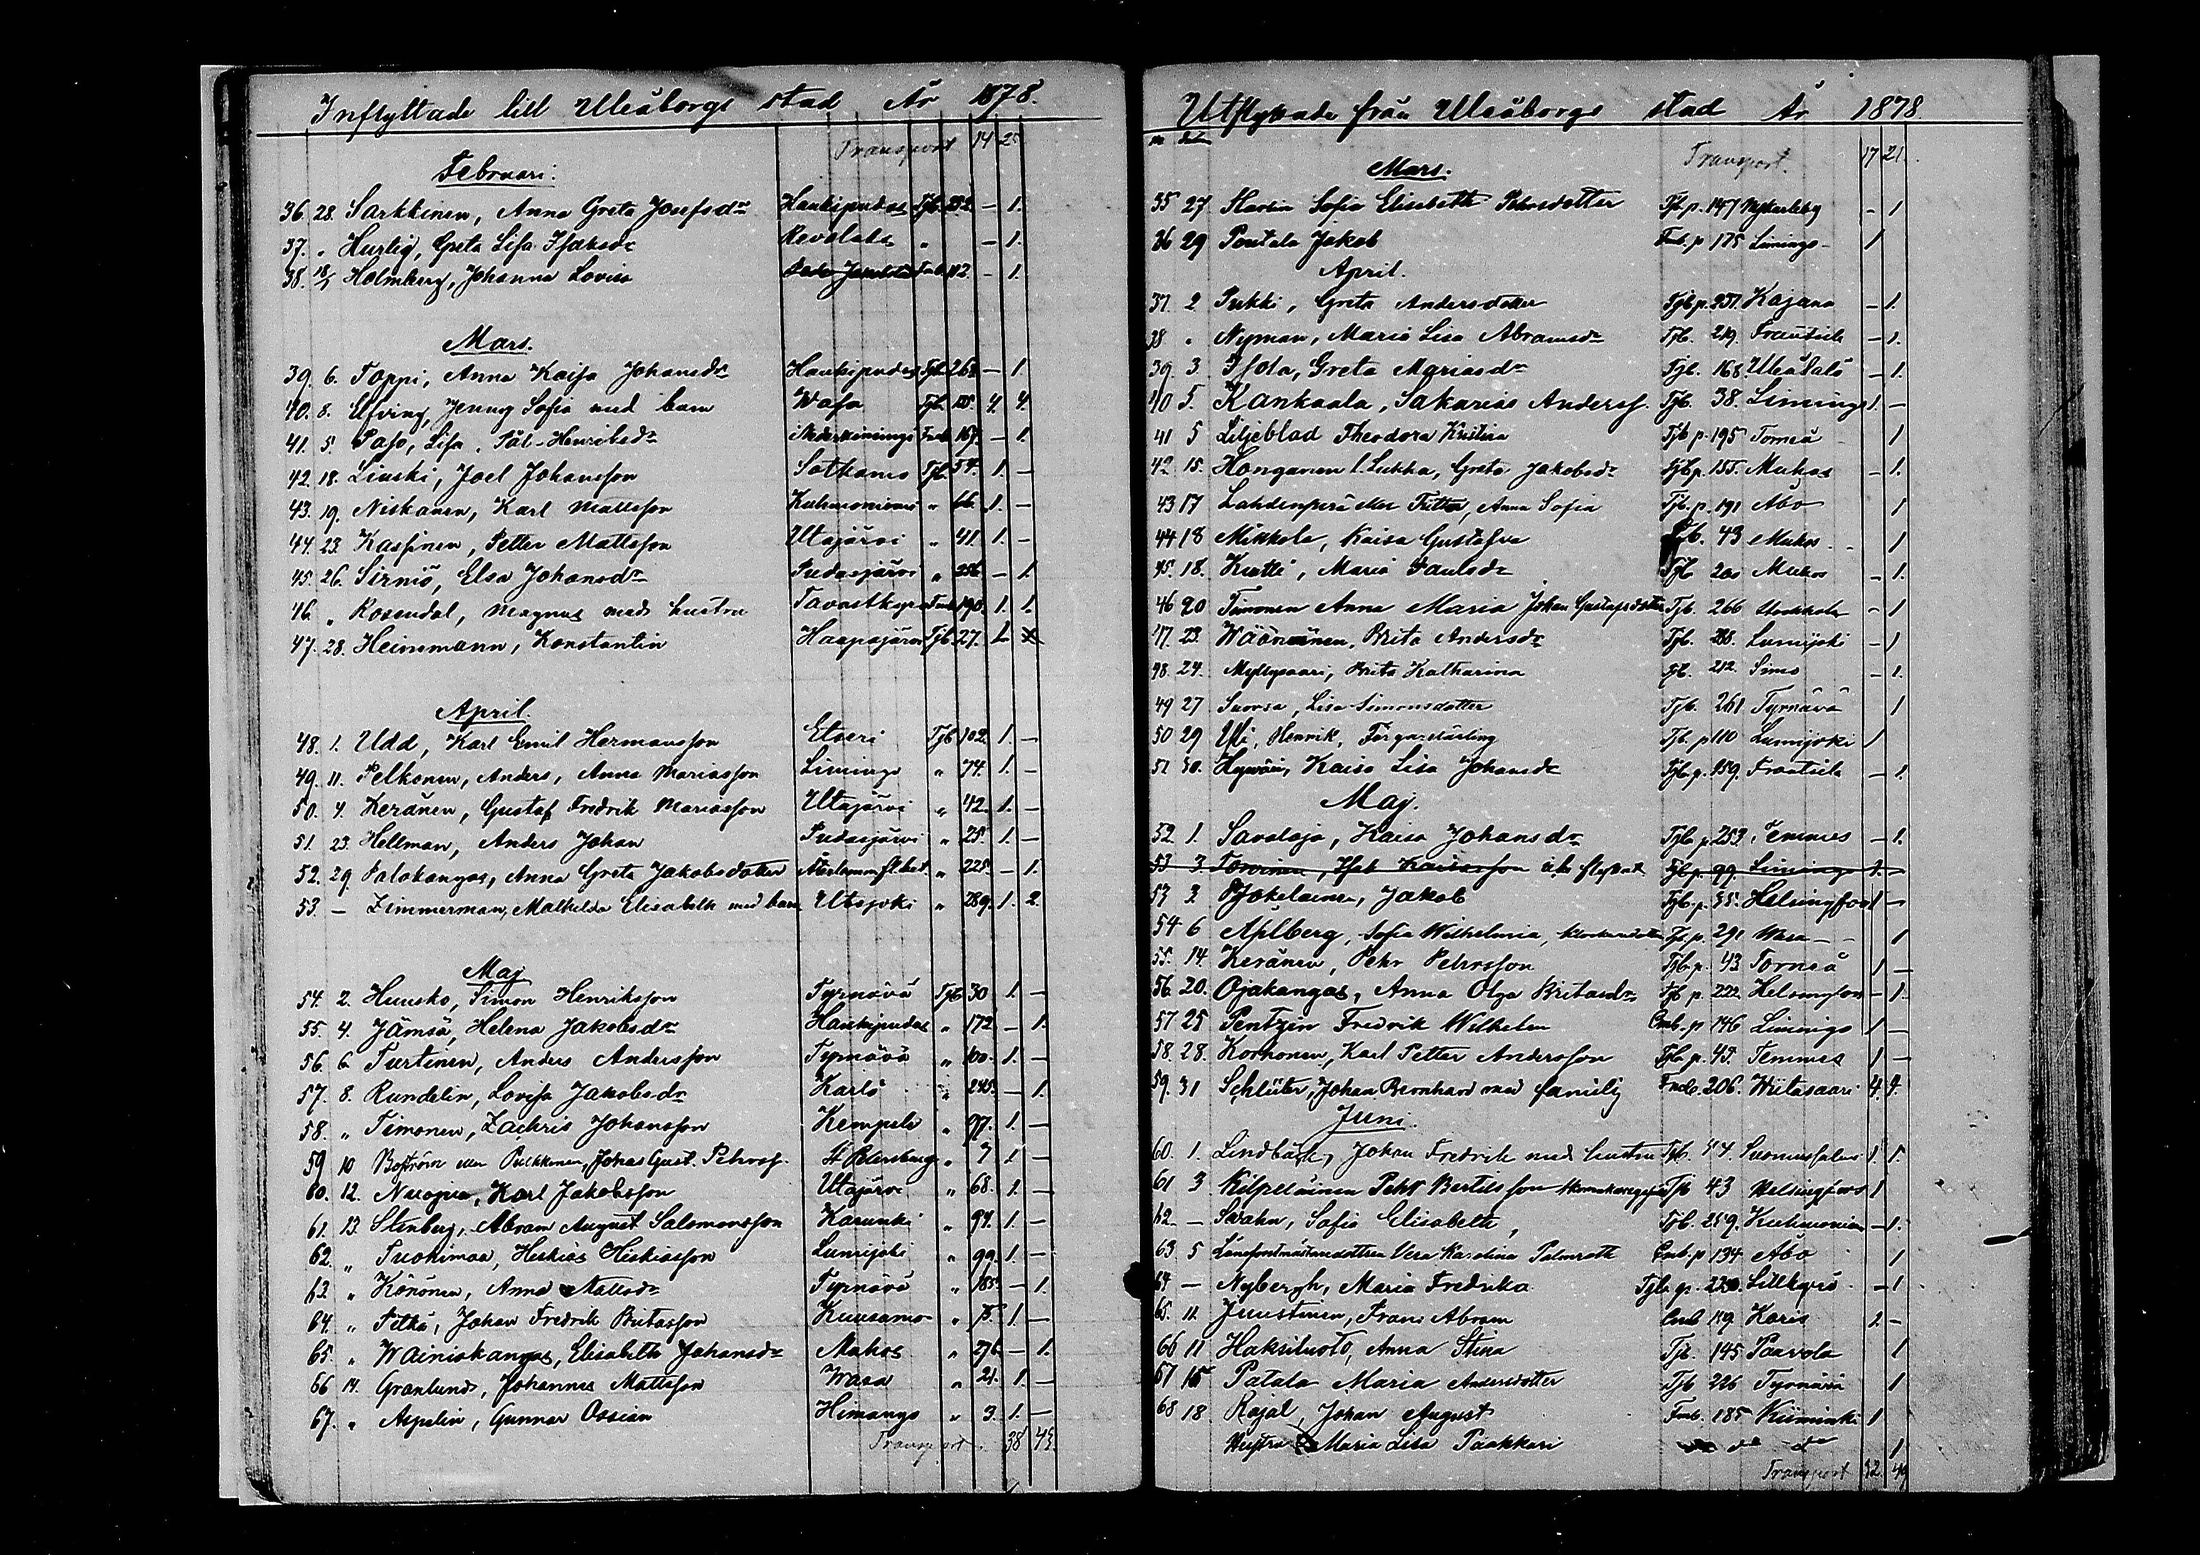 Inflyttade till Uleåborgs stad År 1878.
Transport 14 25
Februari.
36. 28. Sarkkinen, Anna Greta Josefsdr Haukipudas Tjb. 232. – 1.
37. „ Hurtig, Greta Lisa Isaksdr Revolaks „ – 1.
38. Holmberg, Johanna Lovisa 112. – 1.
Mars.
39. 6. Toppi, Anna Kaisa Johansdr Haukipudas Tjb. 268 – 1
40. 8. Ufving, Jenny Sofia med barn Wasa Tjb. 4. 4.
41. 5. Paso, Lisa, Henriksdr 167. – 1.
42. 18. Linski, Joel Johansson Sotkamo Tjb. 54. 1. –
43. 19. Niskanen, Karl Mattsson Kuhmoniemi „ 66. 1. –
44. 23. Kassinen, Petter Mattsson Utajärvi „ 41. 1. –
45. 26. Sirniö, Elsa Johansdr Pudasjärvi „ 256. – 1.
46. „ Rosendal, Magnus med hustru 190. 1. 1.
47. 28. Heinmann, Konstantin Haapajärvi Tjb. 27. 1.
April.
48. 1. Udd, Karl Emil Hermansson Etseri Tjb 102. 1. –
49. 11. Pelkonen, Anders, Anna Mariasson Limingo „ 74. 1. –
50. 4. Keränen, Gustaf Fredrik Mariasson Utajärvi „ 42. 1. –
51. 23. Hellman, Anders Johan Pudasjärvi „ 25. 1. –
52. 29. Palokangas, Anna Greta Jakobsdotter „ 225. – 1.
53. – Zimmerman, Mathilda Elisabeth med barn Utsjoki „ 289. 1. 2.
Maj
54. 2. Huusko, Simon Henriksson Tyrnävä Tjb 30 1. –
55. 4. Jämsä, Helena Jakobsdr Haukipudas „ 172 – 1.
56. 6 Turtinen, Anders Andersson Tyrnävä „ 100. 1. –
57. 8. Rundelin, Lovisa Jakobsdr Karlö „ 245. – 1.
58. „ Timonen, Zachris Johansson Kempele „ 97. 1. –
59 10 Boström eller Pulkkinen, Johas Gust. Pehrss. St Petersburg „ 7 1. –
60. 12. Nuojua, Karl Jakobsson Utajärvi „ 68. 1. –
61. 13. Stenberg, Abram August Salomonsson Karunki „ 94. 1. –
62. „ Tuohimaa, Heskias Heskiasson Lumijoki „ 99. 1. –
63. „ Könönen, Anna Mattsdr Tyrnävä „ 185. – 1.
64. „ Pitkä, Johan Fredrik Britasson Kuusamo „ 75. 1. –
65. „ Wainiokangas, Elisabeth Johansdr Muhos „ 276 – 1.
66 14. Granlund, Johannes Mattsson Wasa „ 21. 1. –
67. „ Aspelin, Gunnar Ossian Himango „ 3. 1. –
Transport 38 43.
Utflyttade från Uleåborgs stad År 1878.
Transport. 17 21.
Mars.
35 27 Sofia Elisabeth Pehrsdotter Tjb p. 147 Nykarleby – 1
36 29 Poutala Jakob p 175 Limingo – 1
April.
37. 2 Pukki, Greta Andersdotter Tjb p. 251. Kajana – 1.
38 „ Nyman, Maria Lisa Abramsdr Tjb. 219. Frantsila – 1.
39 3. Isola, Greta Mariasdr Tjb. 168. Uleåsalo – 1.
40 5. Kankaala, Sakarias Anderss. Tjb. 38. Limingo 1. –
41 5 Liljeblad Theodora Kristina Tjb p. 195 Torneå 1
42 15. Honganen l. Lukka, Greta Jakobsdr Tjb p. 155. Muhos – 1.
43 17 Lahdenperä eller, Anna Sofia Tjb. p. 191 Åbo 1
44 18 Mikkola, Kaisa Gustafva Tjb. 43 Muhos 1
45. 18. Kutti, Maria Paulsdr Tjb 200 Muhos – 1.
46 20 Timonen Anna Maria Johan Gustafsdotter Tjb. 266 Stockholm – 1
47. 23. Wäänänen, Brita Andersdr Tjb. Lumijoki – 1
48. 24. Myllysaari, Brita Katharina Tjb. 212. Simo – 1.
49 27 Suorsa, Lisa Simonsdotter Tjb. 261 Tyrnävä 1
50 29 Yli, Henrik, Färgarelärling Tjb. p 110 Lumijoki 1
51 30. Kaisa Lisa Johansdr Tjb p. 159. Frantsila – 1.
Maj.
52 1. Savaloja, Kaisa Johansdr Tjb p 253. Temmes – 1.
53 3. Torvinen, Isak Kaisasson ej flyttat Tjb p. 99. Limingo 1. –
53 3 Jokelainen, Jakob Tjb p. 35. Helsingfors 1 –
54 6 Ahlberg, Sofia Wilhelmina, Tjb. p. 291 Wasa – 1
55. 14. Keränen, Pehr Pehrsson Tjb p. 43 Torneå 1 –
56. 20. Ojakangas, Anna Olga Britasdr Tjb p. 222. Helsingfors – 1.
57 25 Pentzin Fredrik Wilhelm Cmb. p 146 Limingo 1 –
58. 28. Korhonen, Karl Petter Andersson Tjb p. 45. Temmes 1 –
59. 31 Schlüter, Johan Bernhard med familj Fmb. 206. Wiitasaari 4. 4.
Juni.
60. 1. Lindbäck, Johan Fredrik med hustru Tjb. 54. Suomussalmi 1. 1.
61 3 Kilpeläinen Pehr Bertilsson Tjb 43 Helsingfors 1
62. – Svahn, Sofia Elisabeth, Tjb. 259. Kuhmoniemi – 1.
63 5 Vera Karolina Palmroth Cmb. p 134 Åbo 1
64 – Nybergh, Maria Fredrika Tjb p. 220. Lillkyrö – 1
65. 11. Juustinen, Frans Abram Cmb 159. Karis 2 –
66 11 Haksiluoto, Anna Stina Tjb. 145 Paavola 1
67 15 Patala Maria Andersdotter Tjb 226 Tyrnävä 1
68 18. Rajal, Johan August Fmb. 185 Kiiminki 1
Hustru Maria Lisa Paakkari do do 1
Transport 32. 49